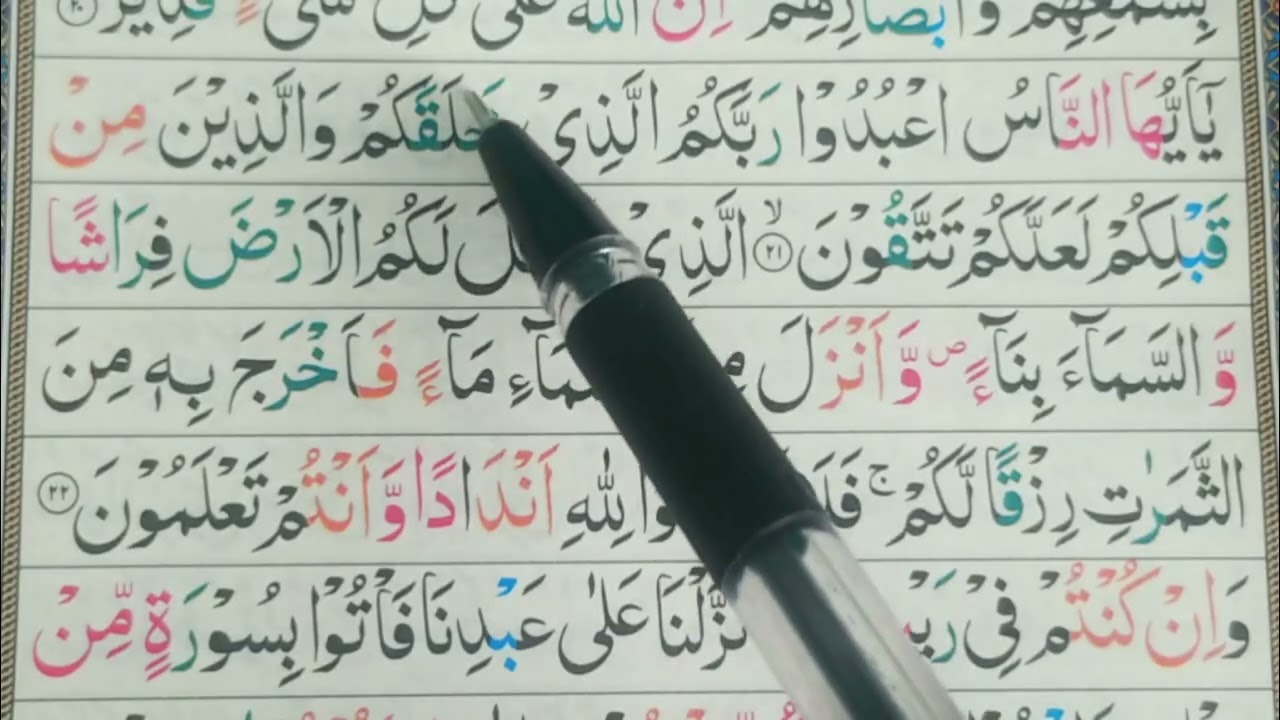 بِسَمْعِهِمْ وَاَبْصَارِهِمْ اِنَّ اللّٰهَ عَلٰى كُلِّ شَىْءٍ قَدِيْرٌ ۲۰
يٰٓاَيُّهَا النَّاسُ اعْبُدُوْا رَبَّكُمُ الَّذِىْ خَلَقَكُمْ وَالَّذِيْنَ مِنْ
قَبْلِكُمْ لَعَلَّكُمْ تَتَّقُوْنَ ۙ ۲۱ الَّذِىْ لَكُمُ الْاَرْضَ فِرَاشًا
وَّ السَّمَآءَ بِنَآءً ۖ وَّ اَنْزَلَ السَّمَآءِ مَآءً فَاَخْرَجَ بِهٖ مِنَ
الثَّمَرٰتِ رِزْقًا لَّكُمْ ۚ لِلّٰهِ اَنْدَادًا وَّ اَنْتُمْ تَعْلَمُوْنَ ۲۲
وَ اِنْ كُنْتُمْ فِىْ نَزَّلْنَا عَلٰى عَبْدِنَا فَاْتُوْا بِسُوْرَةٍ مِّنْ